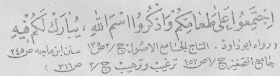 اِجْتَمِعُوا عَلَى طَعَامِكُمْ وَاذْكُرُوا اسْمَ اللهِ، يُبَارَكْ لَكُمْ فِيهِ
(رواه ابو داود. التاج الجامع الاصول ج ٣ سنن ابن ماجه ص ٢٤٥
جامع الصغير ج ١ ص ١٥٢ ترغيب وترهيب ج ٢ ص ٣١٦)